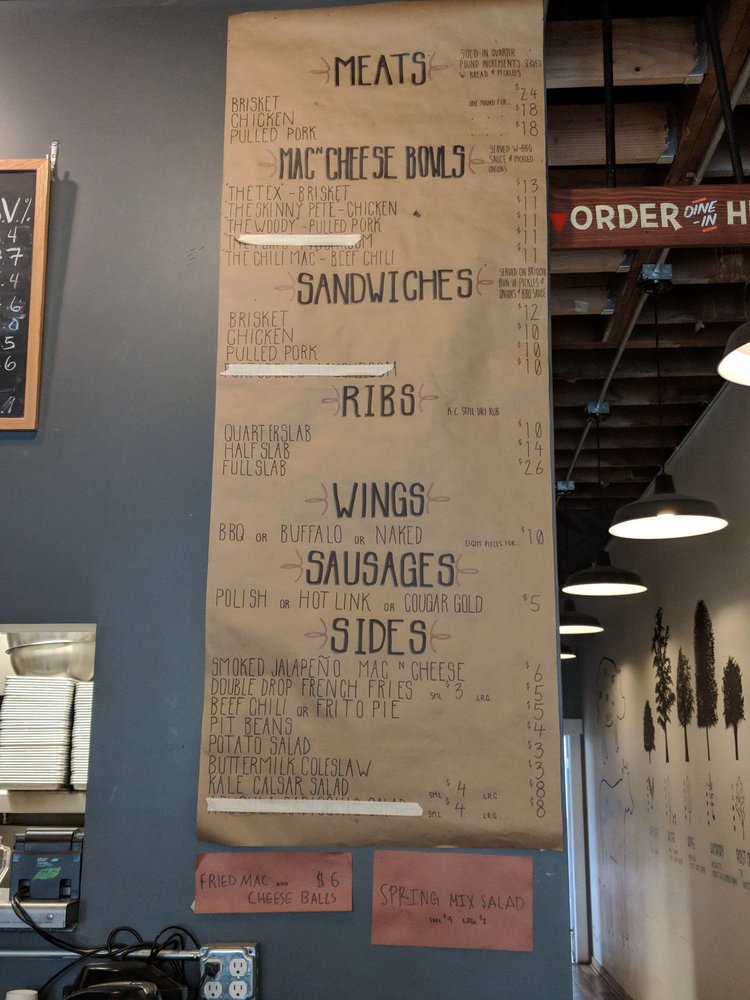 MEATS
SOLD IN QUARTER
POUND INCREMENTS SERVED
W. BREAD & PICKLES
BRISKET ONE POUND FOR... $24
CHICKEN $18
PULLED PORK $18
MAC N CHEESE BOWLS
SERVED W-BBQ
SAUCE & PICKLED
ONIONS
THE TEX - BRISKET $13
THE SKINNY PETE - CHICKEN $11
THE WOODY - PULLED PORK $11
$11
THE CHILI MAC - BEEF CHILI $11
SANDWICHES
SERVED ON BRIOCHE
BUN W PICKLES &
ONIONS & BBQ SAUCE
BRISKET $12
CHICKEN $10
PULLED PORK $10
$10
RIBS
K.C. STYLE DRY RUB
QUARTER SLAB $10
HALF SLAB $14
FULL SLAB $26
WINGS
BBQ OR BUFFALO OR NAKED EIGHT PIECES FOR... $10
SAUSAGES
POLISH OR HOT LINK OR COUGAR GOLD $5
SIDES
SMOKED JALAPEÑO MAC N CHEESE $6
DOUBLE DROP FRENCH FRIES SML $3 LRG $5
BEEF CHILI OR FRITO PIE $5
PIT BEANS $4
POTATO SALAD $3
BUTTERMILK COLESLAW $3
KALE CAESAR SALAD SML $4 LRG $8
SML $4 LRG $8
FRIED MAC AND $6
CHEESE BALLS
SPRING MIX SALAD
SML $4 LRG
ORDER DINE-IN
V. %
.4
.7
.4
.6
.8
.5
.6